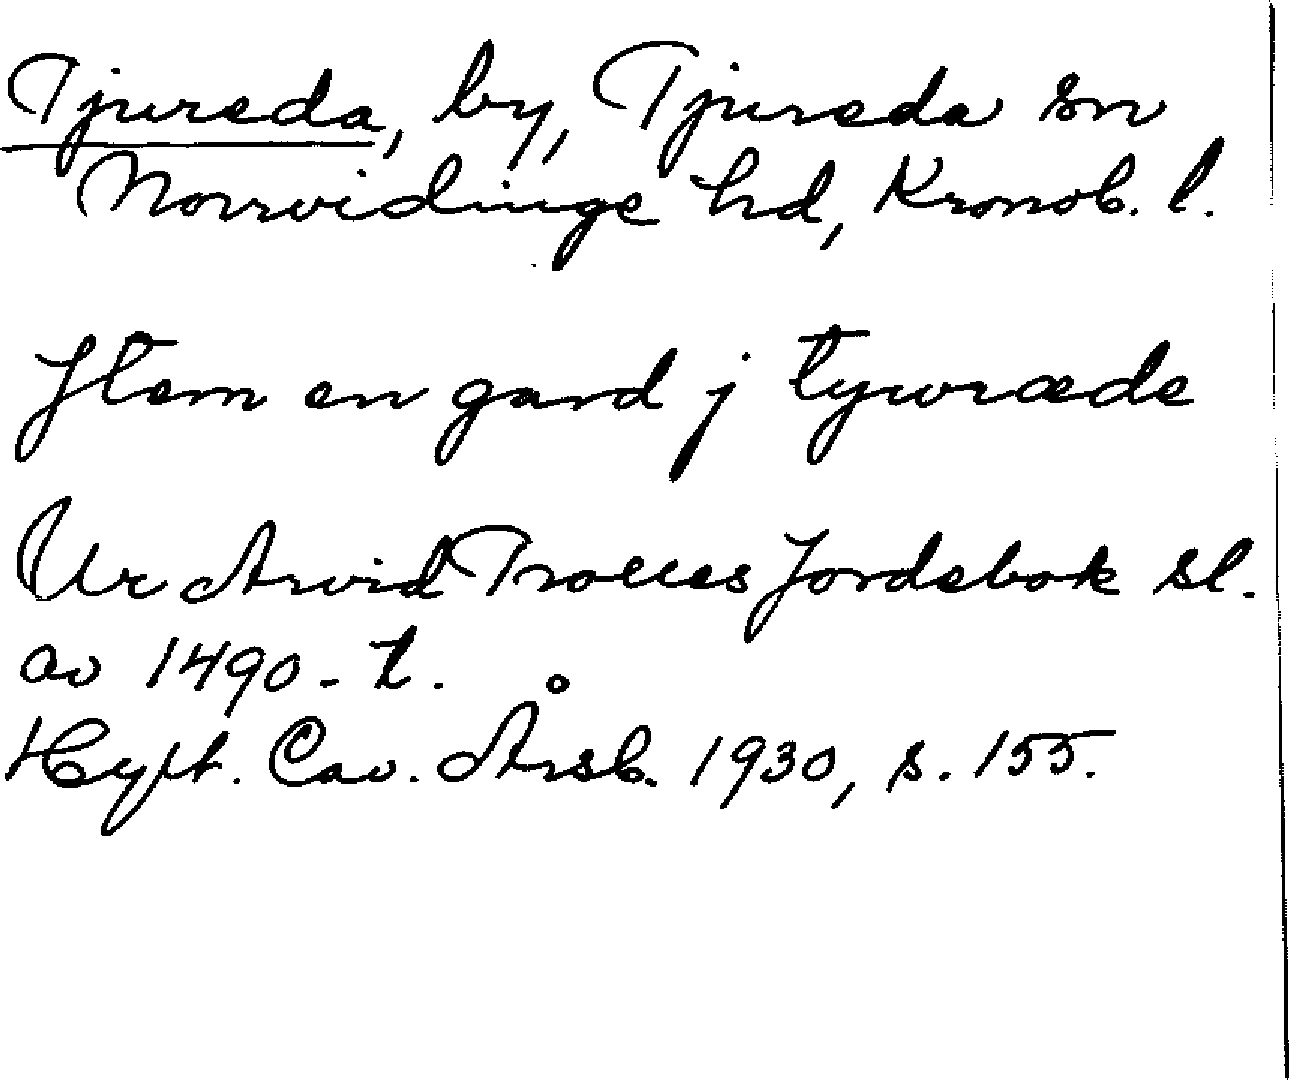 Tjureda, by, Tjureda sn
Norrvidinge hd, Kronob. l.
Jtem en gard j tywræde
Ur Arvid Trolles Jordebok sl.
av 1490-t.
Hylt. Cav. Årsb. 1930, s. 155.